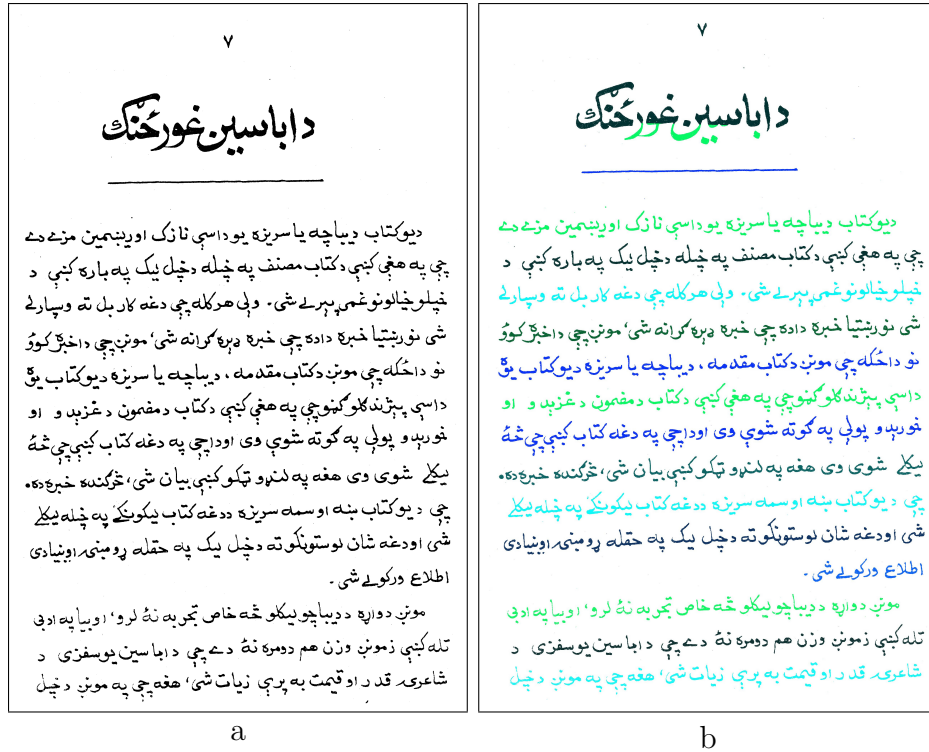 ۷
د اباسین غورځنګ
دیوکتاب دیباچه یا سریزه یو داسې نازک اورېښمین مزے دے
چې په هغې کښې دکتاب مصنف په خپله دخپل لیک په باره کښې د
خپلو خیالونو غمي پېرے شي. ولې هرکله چې دغه کار بل ته وسپارلے
شي نورښتیا خبره داده چې خبره ډېره ګرانه شي، مونږ چې داخبرّ کوو
نو داځکه چې مونږ دکتاب مقدمه، دیباچه یا سریزه دیوکتاب یوّ
داسې پېژندګلو ګڼو چې په هغې کښې دکتاب دمضمون دغزېدو او
خورېدو پولې په ګوته شوې وي اوداچې په دغه کتاب کښې چې څهٔ
لیکلے شوي وي هغه په لنډو ټکو کښې بیان شي، څرګنده خبره ده.
چې دیوکتاب ښه اوسمه سریزه ددغه کتاب لیکونکے په خپله لیکلے
شي اودغه شان لوستونکو ته دخپل لیک په حقله ړومبني اوبنیادي
اطلاع ورکولے شي.
مونږ دواړه ددیباچو لیکلو څه خاص تجربه نهٔ لرو، اوبیا په ادبي
تله کښې زمونږ وزن هم دومره نهٔ دے چې داباسین یوسفزي د
شاعرۍ قدر او قیمت به پرې زیات شي، هغه چې په مونږ دخپل
a
۷
د اباسین غورځنګ
دیوکتاب دیباچه یا سریزه یو داسې نازک اورېښمین مزے دے
چې په هغې کښې دکتاب مصنف په خپله دخپل لیک په باره کښې د
خپلو خیالونو غمي پېرے شي. ولې هرکله چې دغه کار بل ته وسپارلے
شي نورښتیا خبره داده چې خبره ډېره ګرانه شي، مونږ چې داخبرّ کوو
نو داځکه چې مونږ دکتاب مقدمه، دیباچه یا سریزه دیوکتاب یوّ
داسې پېژندګلو ګڼو چې په هغې کښې دکتاب دمضمون دغزېدو او
خورېدو پولې په ګوته شوې وي اوداچې په دغه کتاب کښې چې څهٔ
لیکلے شوي وي هغه په لنډو ټکو کښې بیان شي، څرګنده خبره ده.
چې دیوکتاب ښه اوسمه سریزه ددغه کتاب لیکونکے په خپله لیکلے
شي اودغه شان لوستونکو ته دخپل لیک په حقله ړومبني اوبنیادي
اطلاع ورکولے شي.
مونږ دواړه ددیباچو لیکلو څه خاص تجربه نهٔ لرو، اوبیا په ادبي
تله کښې زمونږ وزن هم دومره نهٔ دے چې داباسین یوسفزي د
شاعرۍ قدر او قیمت به پرې زیات شي، هغه چې په مونږ دخپل
b